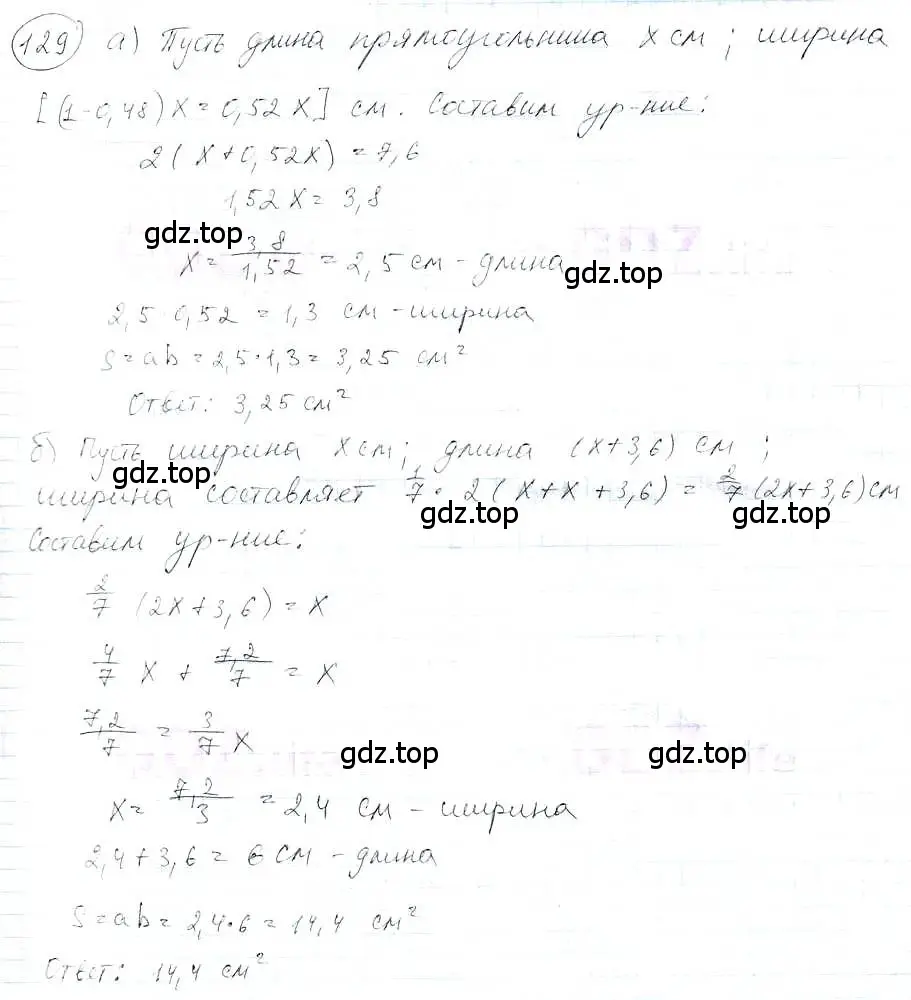 129 а) Пусть длина прямоугольника x см ; ширина
[(1-0,48)x = 0,52x] см. Составим ур-ние:
2(x+0,52x) = 7,6
1,52x = 3,8
gdz.top
x = 3,8/1,52 = 2,5 см - длина
gdz.top
2,5·0,52 = 1,3 см - ширина
S = ab = 2,5·1,3 = 3,25 см²
Ответ: 3,25 см²
б) Пусть ширина x см; длина (x+3,6) см ;
gdz.top
ширина составляет 1/7 · 2(x+x+3,6) = 2/7 (2x+3,6) см
gdz.top gdz.top
Составим ур-ние:
2/7 (2x+3,6) = x
4/7 x + 7,2/7 = x
7,2/7 = 3/7 x
gdz.top gdz.top
x = 7,2/3 = 2,4 см - ширина
2,4+3,6 = 6 см - длина
S = ab = 2,4·6 = 14,4 см²
Ответ: 14,4 см²